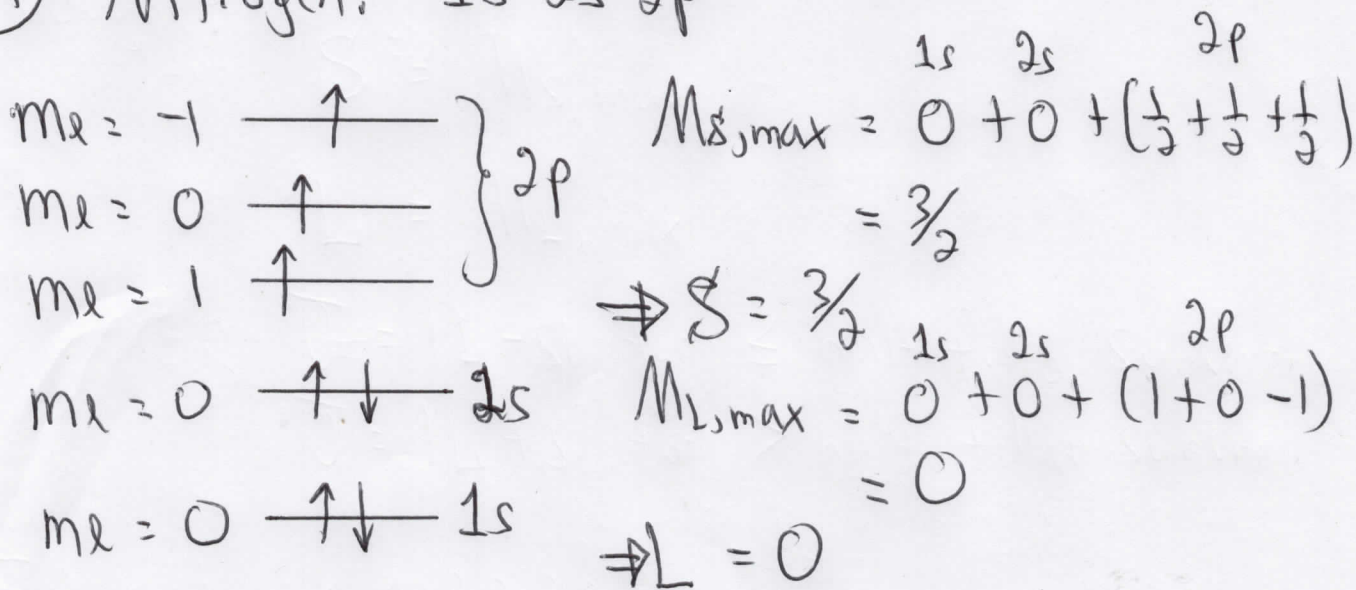 Nitrogen: 1s 2s 2p
mℓ = -1 ↑
mℓ = 0 ↑ } 2p
mℓ = 1 ↑
mℓ = 0 ↑↓ 2s
mℓ = 0 ↑↓ 1s
1s 2s 2p
Ms,max = 0 + 0 + (1/2 + 1/2 + 1/2)
= 3/2
⇒ S = 3/2
1s 2s 2p
ML,max = 0 + 0 + (1 + 0 - 1)
= 0
⇒ L = 0